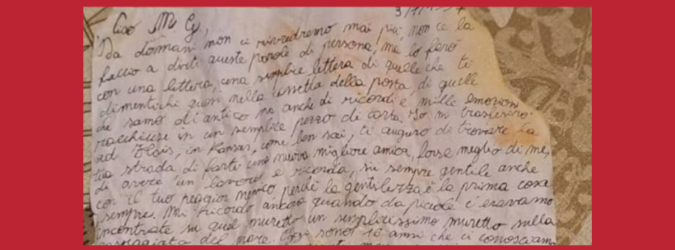 3/11/1997
Ciao M Cy,
Da domani non ci rivedremo mai più, non ce la
faccio a dirti queste parole di persona, ma lo farò
con una lettera, una semplice lettera di quelle che ti
dimentichi quasi nella cassetta della posta, di quelle
che sanno di antico ma anche di ricordi e mille emozioni
racchiuse in un semplice pezzo di carta. Io mi trasferirò
ad in Kansas, come ben sai, ti auguro di trovare la
tua strada di farti una nuova migliore amica, forse meglio di me,
di avere un lavoro e ricorda, sii sempre gentile anche
con il tuo peggior nemico perché la gentilezza è la prima cosa
sempre. Mi ricordo ancora quando da piccole c'eravamo
incontrate su quel muretto un semplicissimo muretto sulla
del mare. Oggi sono 10 anni che ci conosciamo